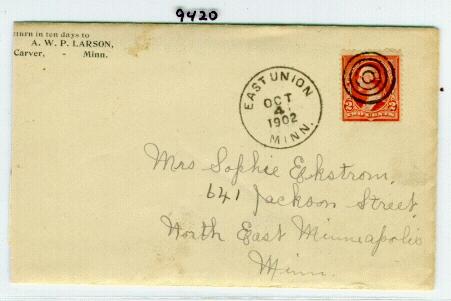 9420
eturn in ten days to
A. W. P. LARSON,
Carver, - Minn.
EAST UNION
OCT
4
1902
MINN.
2 2
TWO CENTS
Mrs Sophie Eckstrom,
641 Jackson Street,
North East Minneapolis
Minn.